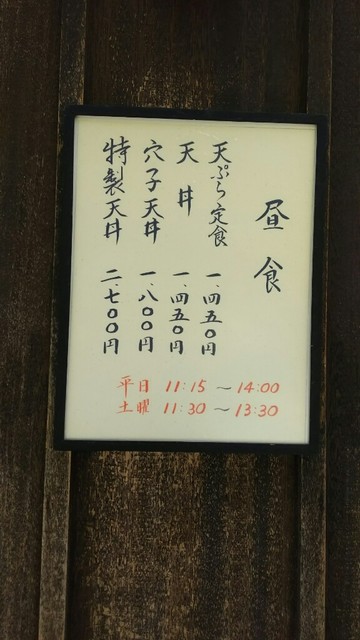 昼食
天ぷら定食 一、四五〇円
天丼 一、四五〇円
穴子天丼 一、八〇〇円
特製天丼 二、七〇〇円
平日 11:15 ～ 14:00
土曜 11:30 ～ 13:30